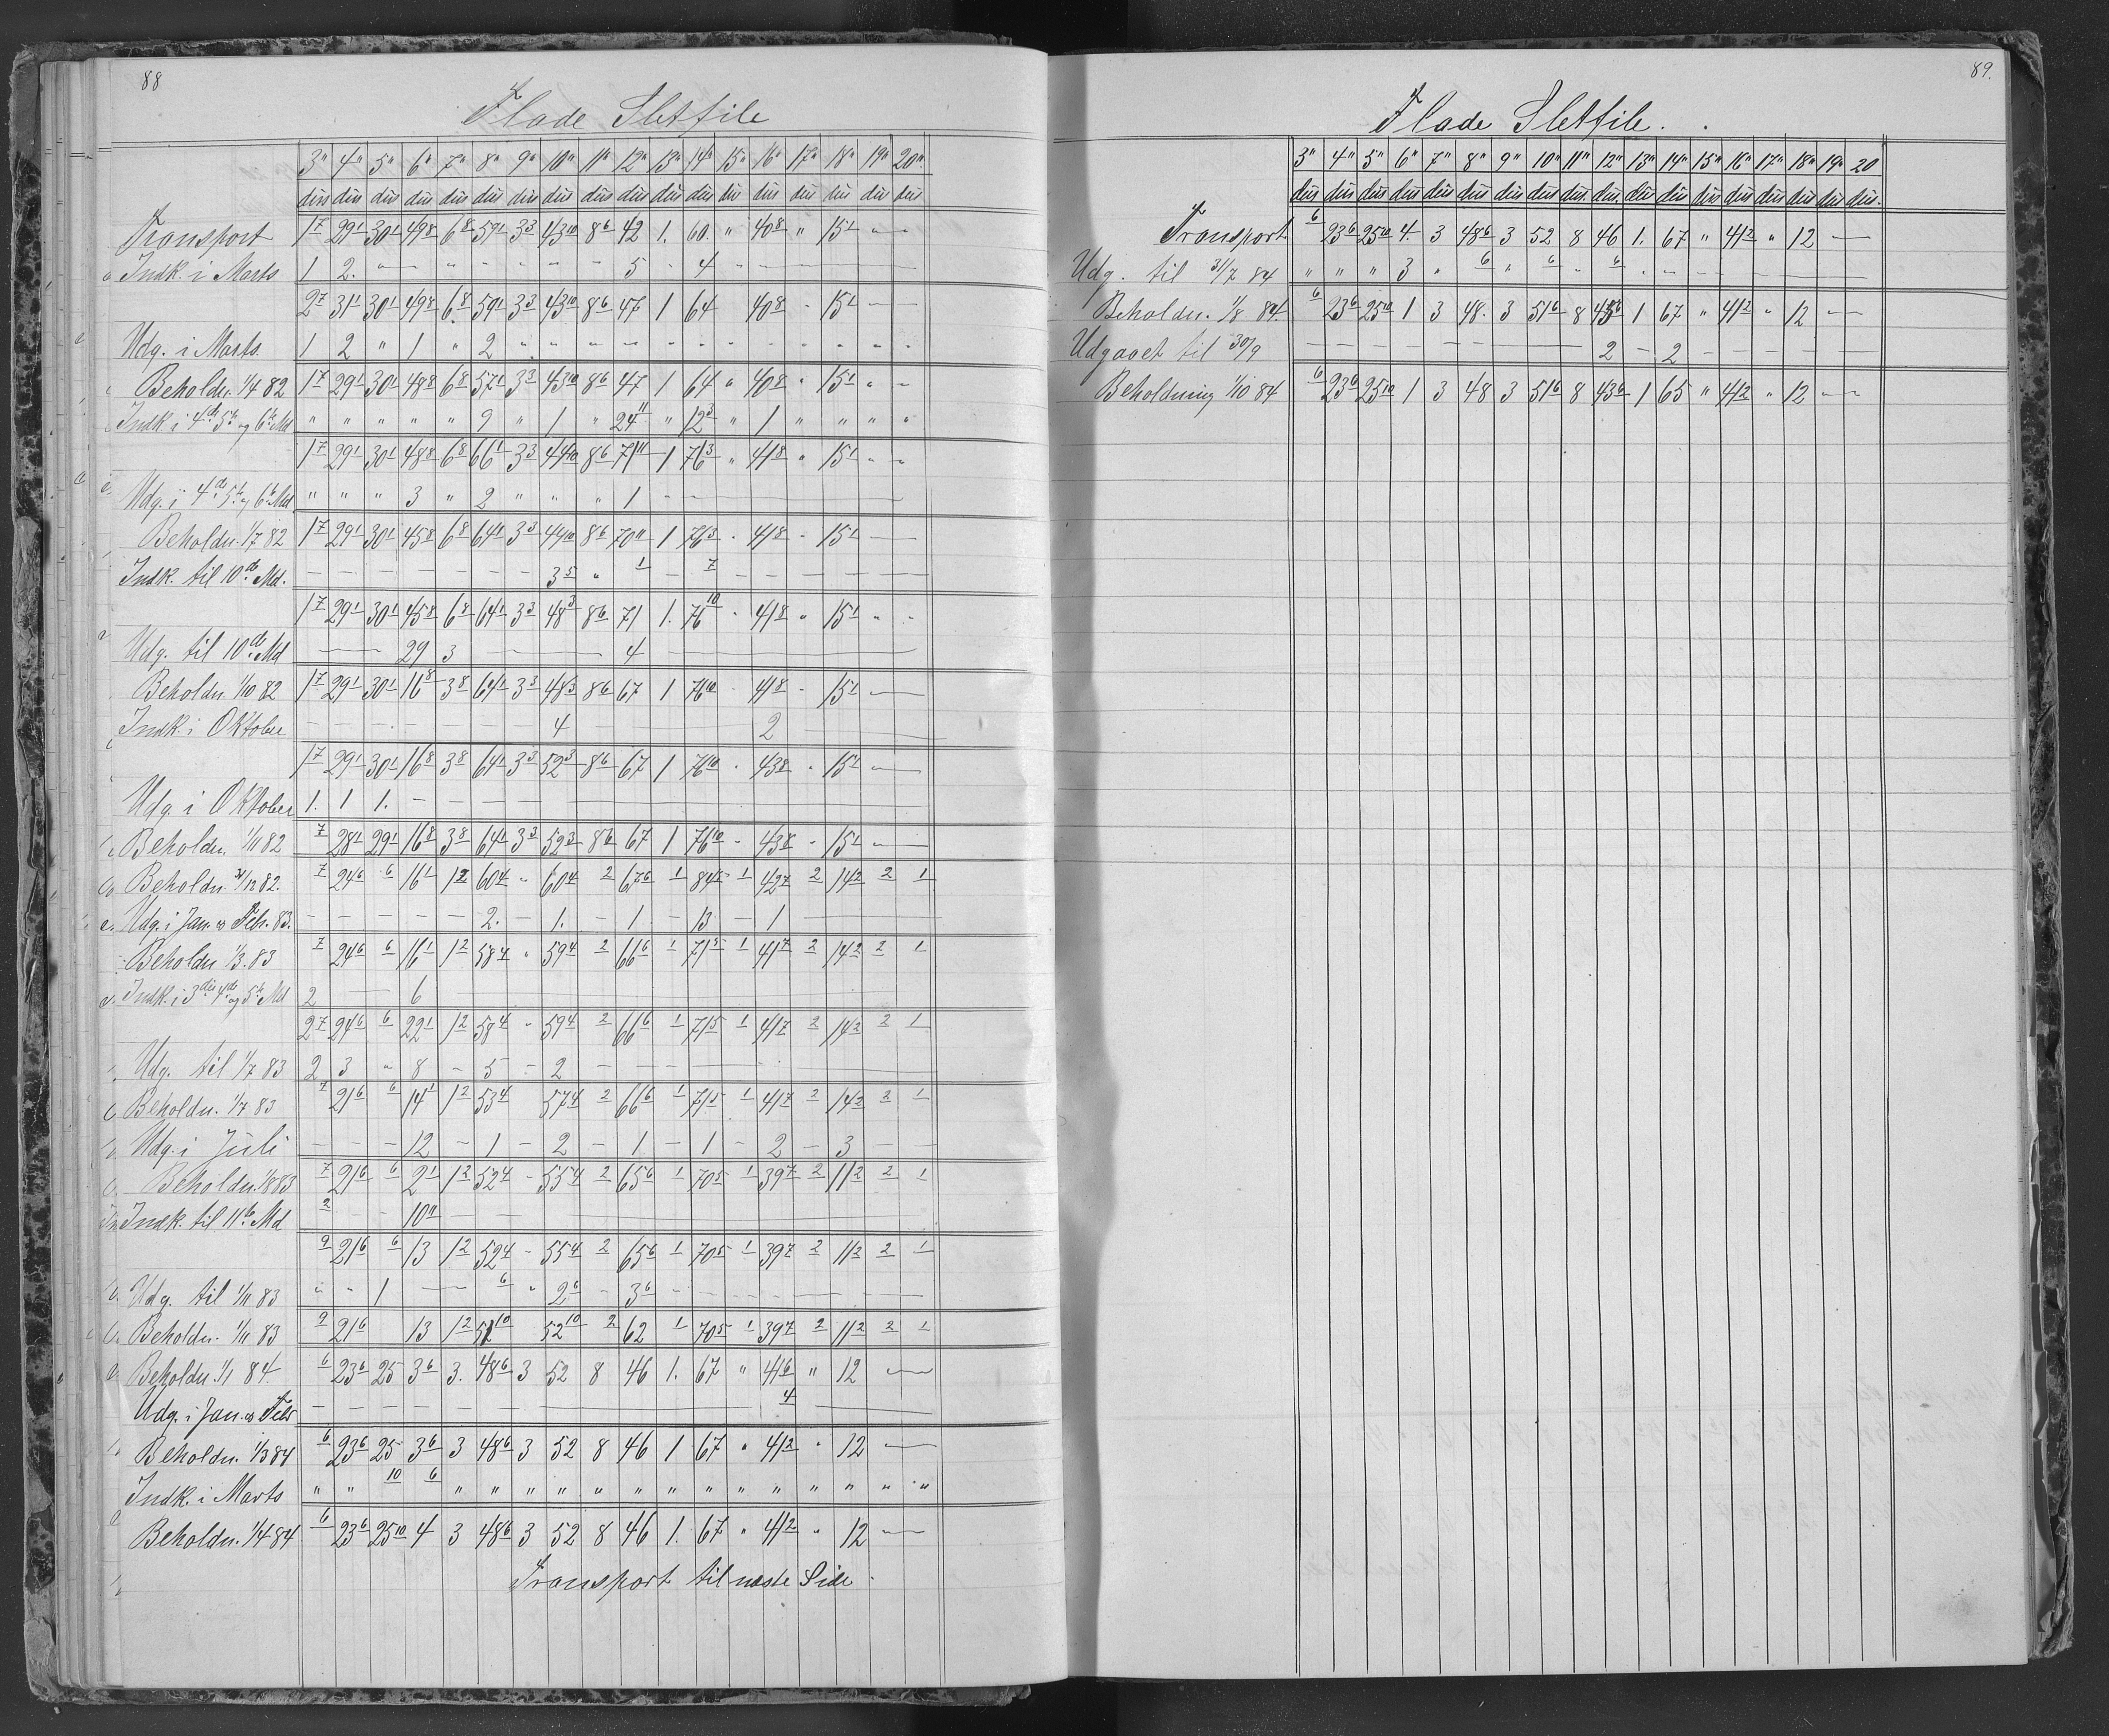 88
Flade Sletfile
3" 4" 5" 6" 7" 8" 9" 10" 11" 12" 13" 14" 15" 16" 17" 18" 19" 20"
dus dus dus dus dus dus dus dus dus dus dus dus dus dus dus dus dus dus
Transport 1 7 29 1 30 1 49 8 6 8 59 1 3 3 43 10 8 6 42 1. 60. " 40 8 " 15 1 " "
Indk. i Marts 1 2. " — " - - - - 5 - 4 " — — —
2 7 31 1 30 1 49 8 6 8 59 1 3 3 43 10 8 6 47 1 64 40 8 " 15 1 —
Udg. i Marts. 1 2 " 1 " 2 " " " " " " " " " " " "
Beholdn. 1/4 82 1 7 29 1 30 1 48 8 6 8 57 1 3 3 43 10 8 6 47 1 64 " 40 8 " 15 1 " "
Indk i 4de 5te og 6te Md " " " " " 9 " 1 " 24 11 " 12 3 " 1 " " " "
1 7 29 1 30 1 48 8 6 8 66 1 3 3 44 10 8 6 71 11 1 76 3 " 41 8 " 15 1 " "
Udg. i 4de 5te og 6te Md " " " 3 " 2 " " " 1 — — —
Beholdn. 1/7 82 1 7 29 1 30 1 45 8 6 8 64 1 3 3 44 10 8 6 70 11 1 76 3 " 41 8 " 15 1 — —
Indk. til 10de Md. — — — — — — — 3 5 " 1 — 7 — — — — — —
1 7 29 1 30 1 45 8 6 8 64 1 3 3 48 3 8 6 71 1. 76 10 " 41 8 " 15 1 " "
Udg. til 10de Md — — 29 3 — — — 4 — — —
Beholdn. 1/10 82 1 7 29 1 30 1 16 8 3 8 64 1 3 3 48 3 8 6 67 1 76 10 " 41 8 " 15 1 —
Indk. i Oktober — — — — — — — 4 — — — 2 — —
1 7 29 1 30 1 16 8 3 8 64 1 3 3 52 3 8 6 67 1 76 10 " 43 8 " 15 1 —
Udg. i Oktober 1. 1 1. — — — — —
Beholdn. 1/11 82 7 28 1 29 1 16 8 3 8 64 1 3 3 52 3 8 6 67 1 76 10 " 43 8 " 15 1 " —
Beholdn. 31/12 82. 7 24 6 6 16 1 1 2 60 4 " 60 4 2 67 6 1 84 5 1 42 7 2 14 2 2 1
Udg. i Jan. og Febr. 83. — — — — — 2. — 1. — 1 — 13 — 1 — —
Beholdn 1/3. 83 7 24 6 6 16 1 1 2 58 4 " 59 4 2 66 6 1 71 5 1 41 7 2 14 2 2 1
Indk. i 3die 4de og 5te Md 2 — 6 — — —
2 7 24 6 6 22 1 1 2 58 4 " 59 4 2 66 6 1 71 5 1 41 7 2 14 2 2 1
Udg. til 1/7 83 2 3 " 8 — 5 — 2 — — —
Beholdn. 1/7 83 7 21 6 6 14 1 1 2 53 4 57 4 2 66 6 1 71 5 1 41 7 2 14 2 2 1
Udg. i Juli — — — 12 — 1 — 2 — 1 — 1 — 2 — 3 — —
Beholdn. 1/8 83 7 21 6 6 2 1 1 2 52 4 — 55 4 2 65 6 1 70 5 1 39 7 2 11 2 2 1
Indk. til 11te Md 2 — — 10 11 — — —
9 21 6 6 13 1 2 52 4 — 55 4 2 65 6 1 70 5 1 39 7 2 11 2 2 1
Udg. til 1/11 83 " " 1 — 6 " 2 6 — 3 6 — —
Beholdn. 1/11 83 9 21 6 13 1 2 51 10 52 10 2 62 1 70 5 1 39 7 2 11 2 2 1
Beholdn. 1/1 84. 6 23 6 25 3 6 3. 48 6 3 52 8 46 1. 67 " 41 6 " 12 —
Udg. i Jan. og Febr — — — — — — — 4 —
Beholdn. 1/3 84 6 23 6 25 3 6 3 48 6 3 52 8 46 1 67 " 41 2 " 12 —
Indk. i Marts " " 10 6 " " " " " " " " " " " " " "
Beholdn. 1/4 84 6 23 6 25 10 4 3 48 6 3 52 8 46 1. 67 " 41 2 " 12 —
Transport til næste Side.
89.
Flade Sletfile.
3" 4" 5" 6" 7" 8" 9" 10" 11" 12" 13" 14" 15" 16" 17" 18" 19" 20
dus dus dus dus dus dus dus dus dus. dus. dus dus dus dus dus dus dus dus.
Transport 6 23 6 25 10 4. 3 48 6 3 52 8 46 1. 67 " 41 2 " 12 —
Udg. til 31/7 84 " " " 3 " 6 " 6 " 6 " — — —
Beholdn. 1/8 84. 6 23 6 25 10 1 3 48. 3 51 6 8 45 6 1 67 " 41 2 " 12 —
Udgaaet til 30/9 — — — — — — — 2 — 2 — — — — —
Beholdning 1/10 84 6 23 6 25 10 1 3 48 3 51 6 8 43 6 1 65 " 41 2 " 12 —